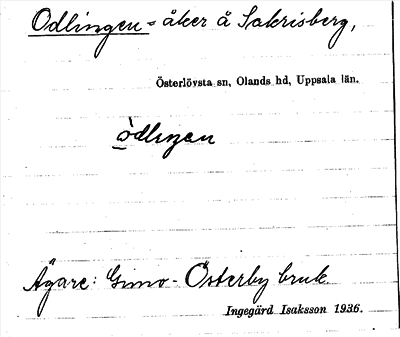 Odlingen = åker å Sakrisberg,
Österlövsta sn, Olands hd, Uppsala län.
òdlıŋen
Ägare: Gimo-Österby bruk.
Ingegärd Isaksson 1936.